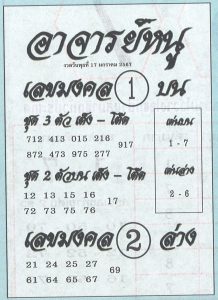 อาจารย์หนู
งวดวันพุธที่ 17 มกราคม 2567
เลขมงคล 1 บน
ชุด 3 ตัว เต็ง - โต๊ด
712 413 015 216
917
872 473 975 277
เด่นบน
1 - 7
ชุด 2 ตัวบน เต็ง - โต๊ด
12 13 15 16
17
72 73 75 76
เด่นล่าง
2 - 6
เลขมงคล 2 ล่าง
21 24 25 27
69
61 64 65 67